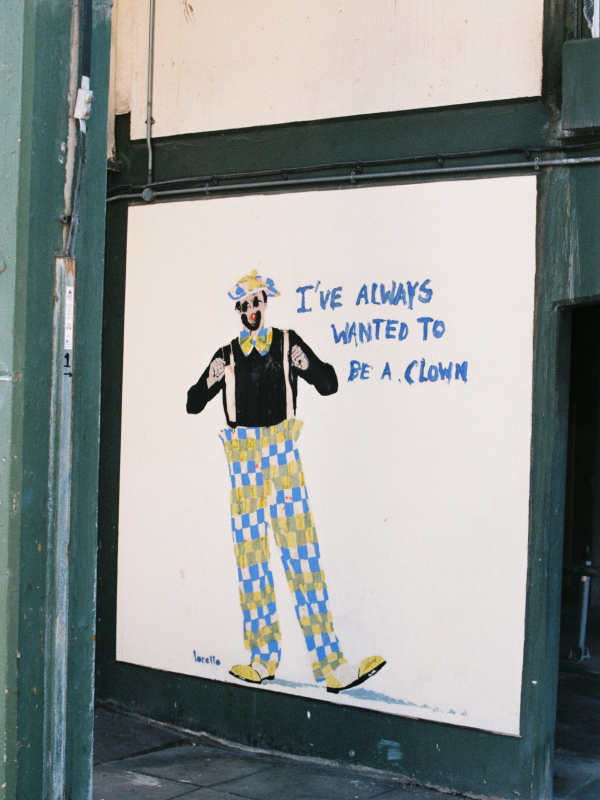 I'VE ALWAYS
WANTED TO
BE A CLOWN
loretto
1